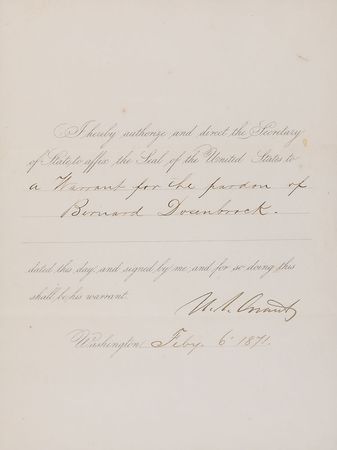 I hereby authorize and direct the Secretary
of State to affix the Seal of the United States to
a Warrant for the pardon of
Bernard Dosenbrock.
dated this day, and signed by me, and for so doing this
shall be his warrant.
U.S. Grant
Washington, Feby. 6 1871.